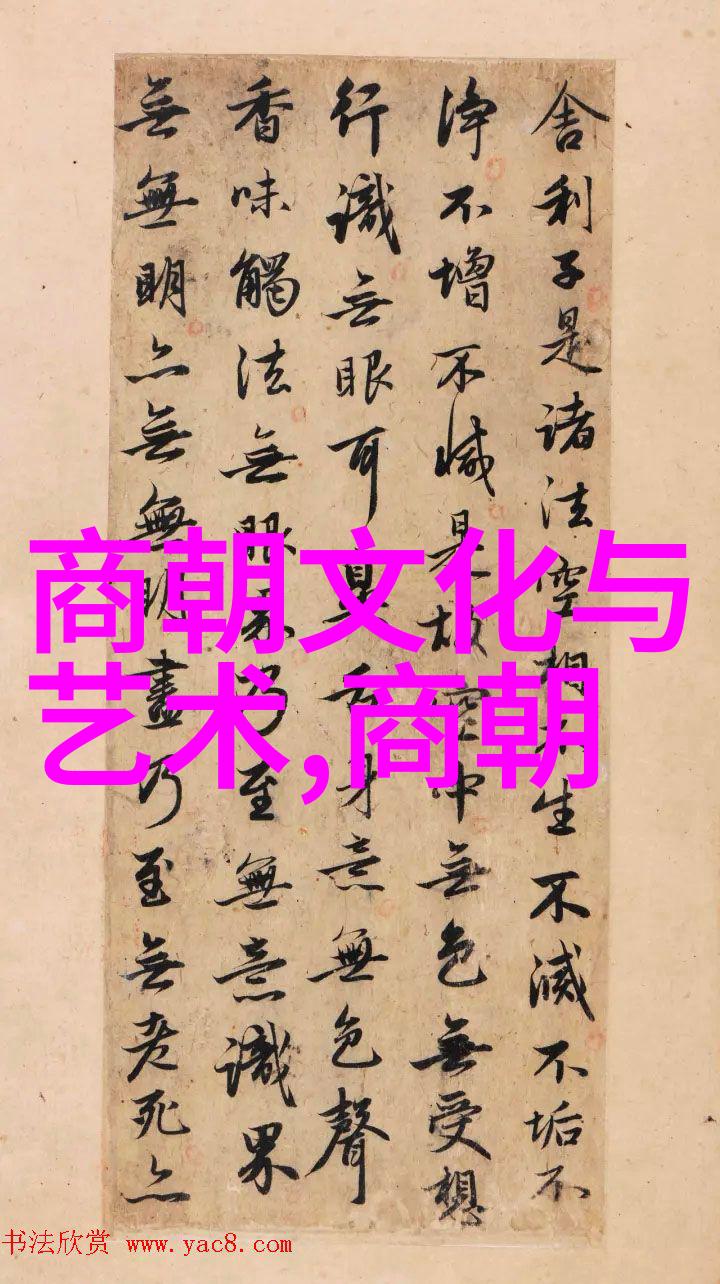 舍利子是諸法空相不生不滅不垢不
淨不增不減是故空中無色無受想
行識無眼耳鼻舌身意無色聲
香味觸法無眼界乃至無意識界
無無明亦無無明盡乃至無老死亦
商朝文化与
艺术,商朝
书法欣赏 www.yac8.com